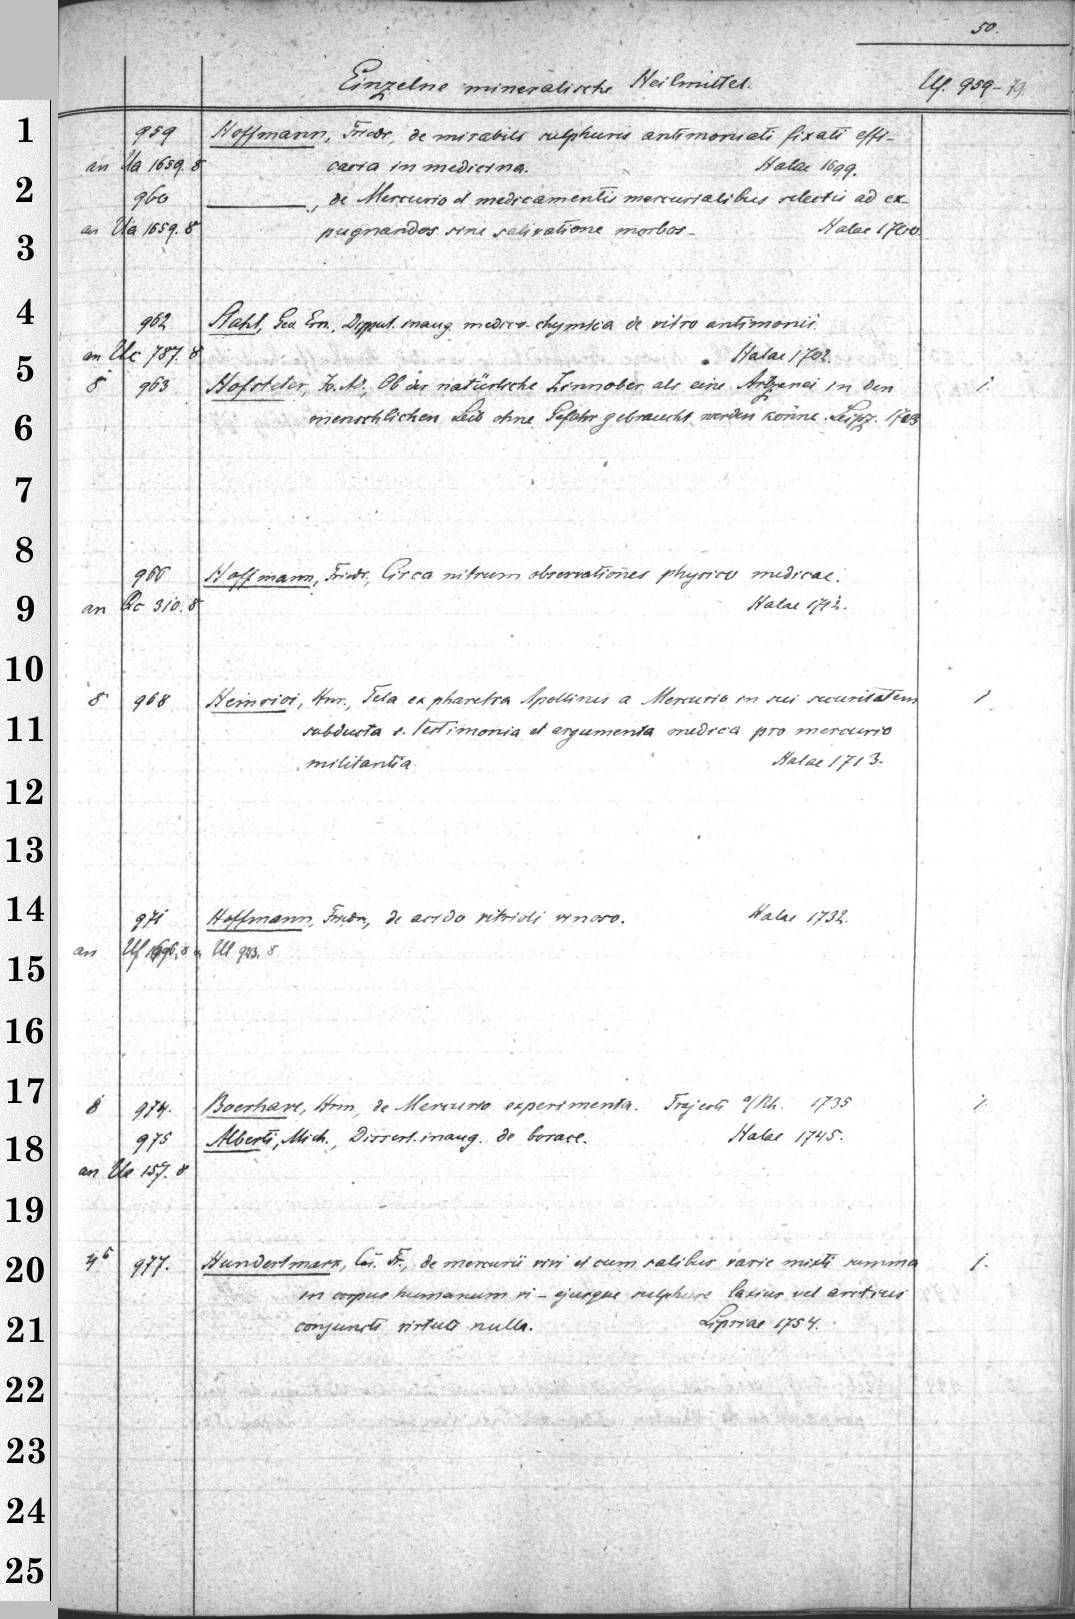 50.
Einzelne mineralische Heilmittel. Uf. 959-79.
1
959 Hoffmann, Friedr, de mirabili sulphuris antimoniati fixati effi-
an Ua 1659. 8 cacia in medicina. Halae 1699.
2
960 ———, de Mercurio et medicamentis mercurialibus selectis ad ex-
an Ua 1659. 8 pugnandos sine salivatione morbos- Halae 1700.
3
4
962 Stahl, Geo Ern., Disput. inaug. medico-chymica de vitro antimonii.
an Uc 787. 8 Halae 1702.
5
8 963 Hofsteter, Jo. Ad., Ob der natürliche Zinnober als eine Artzenei in den 1.
menschlichen Leib ohne Gefahr gebraucht werden könne. Leipz. 1703
6
7
8
966 Hoffmann, Friedr., Circa nitrum observationes physico medicae.
an 310. 8 Halae 1712.
9
10
8 968 Heinrici, Hnr., Tela ex pharetra Apollinis a Mercurio in sui securitatem 1
11
subducta s. testimonia et argumenta medica pro mercurio
militantia. Halae 1713.
12
13
14
971 Hoffmann, Friedr, de acido vitrioli vinoso. Halae 1732.
an Uf 8 u. Ul 943. 8
15
16
17
8 974. Boerhave, Hrm, de Mercurio experimenta. Trajecti a/Rh. 1735 1.
18
975 Alberti, Mich., Dissert. inaug. de borace. Halae 1745.
an Ua 157. 8
19
20
4° 977. Hundertmark, Car. Fr., de mercurii vivi et cum salibus varie mixti summa 1.
in corpus humanum vi - ejusque sulphure laxius vel arctius
21
conjuncti virtute nulla. Lipsiae 1754.
22
23
24
25